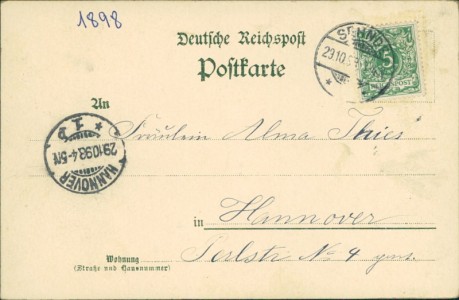 1898
Deutsche Reichspost
Postkarte
SEHNDE
29.10.98
5
REICHSPOST
An
Fräulein Alma Thies
HANNOVER
29.10.98.4-5N
1 P
in Hannover
No 4
Wohnung
(Straße und Hausnummer)